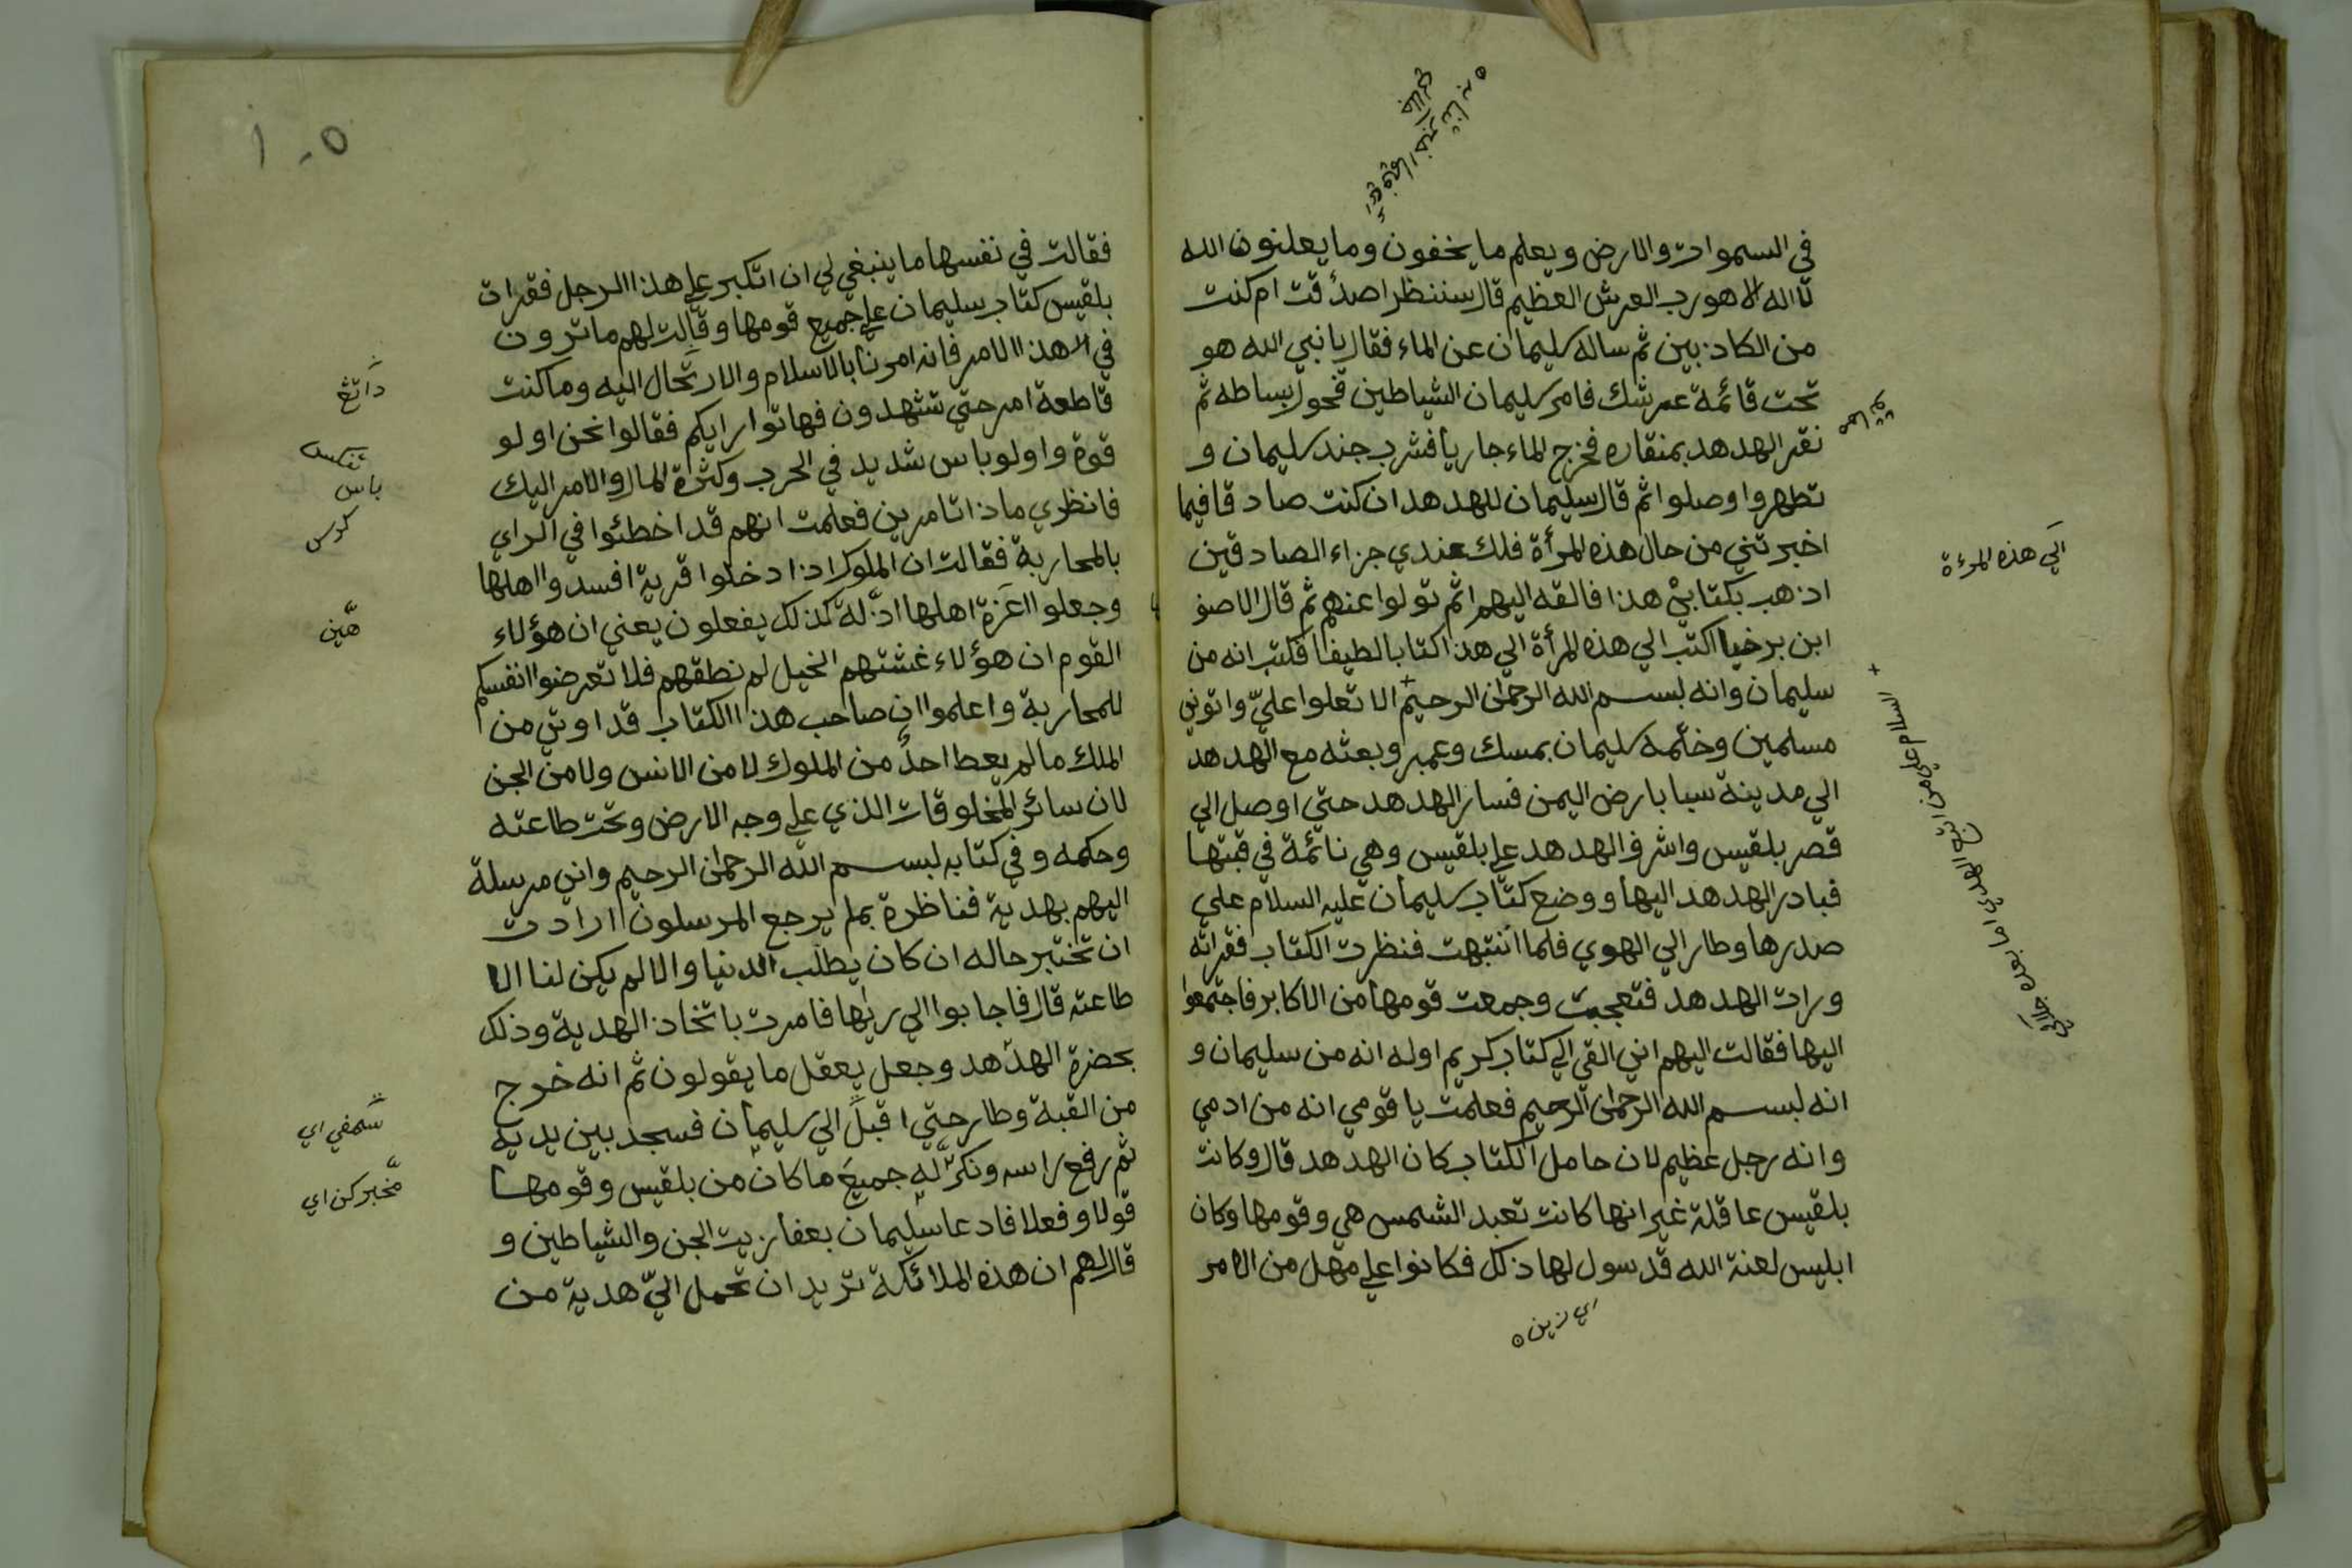 في السموات والارض ويعلم ما يخفون وما يعلنون الله
لا اله الا هو رب العرش العظيم قال سننظر اصدقت ام كنت
من الكاذبين ثم ساله سليمان عن الماء فقال يا نبي الله هو
تحت قائمة عرشك فامر سليمان الشياطين فحول بساطه ثم
نقر الهدهد بمنقاره فخرج الماء جاريا فشرب جند سليمان و
تطهروا وصلوا ثم قال سليمان للهدهد ان كنت صادقا فيما
اخبرتني من حال هذه المرأة فلك عندي جزاء الصادقين
اذهب بكتابي هذا فالقه اليهم ثم تولوا عنهم ثم قال الاصف
ابن برخيا اكتب الي هذه المرأة الي هذا كتابا لطيفا فكتب انه من
سليمان وانه لبسم الله الرحمن الرحيم الا تعلوا عليّ واتوني
مسلمين وختمه سليمان بمسك وعمبر وبعثه مع الهدهد
الي مدينة سبا بارض اليمن فسار الهدهد حتي اوصل الي
قصر بلقيس واشرف الهدهد علي بلقيس وهي نائمة في قبتها
فبادر الهدهد اليها ووضع كتاب سليمان عليه السلام علي
صدرها وطار الي الهوي فلما انتبهت فنظرت الكتاب فقراته
ورات الهدهد فتعجبت وجمعت قومها من الاكابر فاجتمعوا
اليها فقالت اليهم اني القي الي كتاب كريم اوله انه من سليمان و
انه لبسم الله الرحمن الرحيم فعلمت يا قومي انه من ادمي
وانه رجل عظيم لان حامل الكتاب كان الهدهد قال وكانت
بلقيس عاقلة غير انها كانت تعبد الشمس هي وقومها وكان
ابليس لعنة الله قد سول لها ذلك فكانوا علي مهل من الامر
اي زين
الي هذه المرءة
السلام علي من اتبع الهدي اما بعد جلالين
١٠٥
فقالت في نفسها ما ينبغي لي ان اتكبر علي هذا الرجل فقرات
بلقيس كتاب سليمان علي جميع قومها وقالت لهم ما ترون
في هذا الامر فانه امرنا بالاسلام والارتحال اليه وما كنت
قاطعة امر حتي تشهدون فهاتوا رايكم فقالوا نحن اولو
قوة واولو باس شديد في الحرب وكثرة المال والامر اليك
فانظري ماذا تامرين فعلمت انهم قد اخطئوا في الراي
بالمحاربة فقالت ان الملوك اذا دخلوا قرية افسدوا اهلها
وجعلوا اعزة اهلها اذلة كذلك يفعلون يعني ان هؤلاء
القوم ان هؤلاء غشتهم الخيل لم نطقهم فلا تعرضوا انفسكم
للمحاربة واعلموا ان صاحب هذا الكتاب قد اوتي من
الملك ما لم يعط احدٌ من الملوك لا من الانس ولا من الجن
لان سائر المخلوقات الذي علي وجه الارض وتحت طاعته
وحكمه وفي كتابه لبسم الله الرحمن الرحيم واني مرسلة
اليهم بهدية فناظرة بم يرجع المرسلون ارادت
ان تختبر حاله ان كان يطلب الدنيا والا لم يكن لنا الا
طاعته قال فاجابوا الي ريها فامرت باتخاذ الهدية وذلك
بحضرة الهدهد وجعل يعقل ما يقولون ثم انه خرج
من القبة وطار حتي اقبل الي سليمان فسجد بين يديه
ثم رفع راسه ونكر له جميع ما كان من بلقيس وقومها
قولا وفعلا فادعا سليمان بعفاريت الجن والشياطين و
قال لهم ان هذه الملائكة تريد ان تحمل اليّ هدية من
داتغ
باس
كرس
هين
سمفي اي